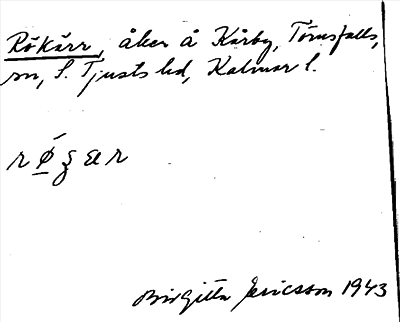 Rökärr, åker å Kårby, Törnsfalls,
sn, S. Tjusts hd, Kalmar l.
Birgitta Ericsson 1943